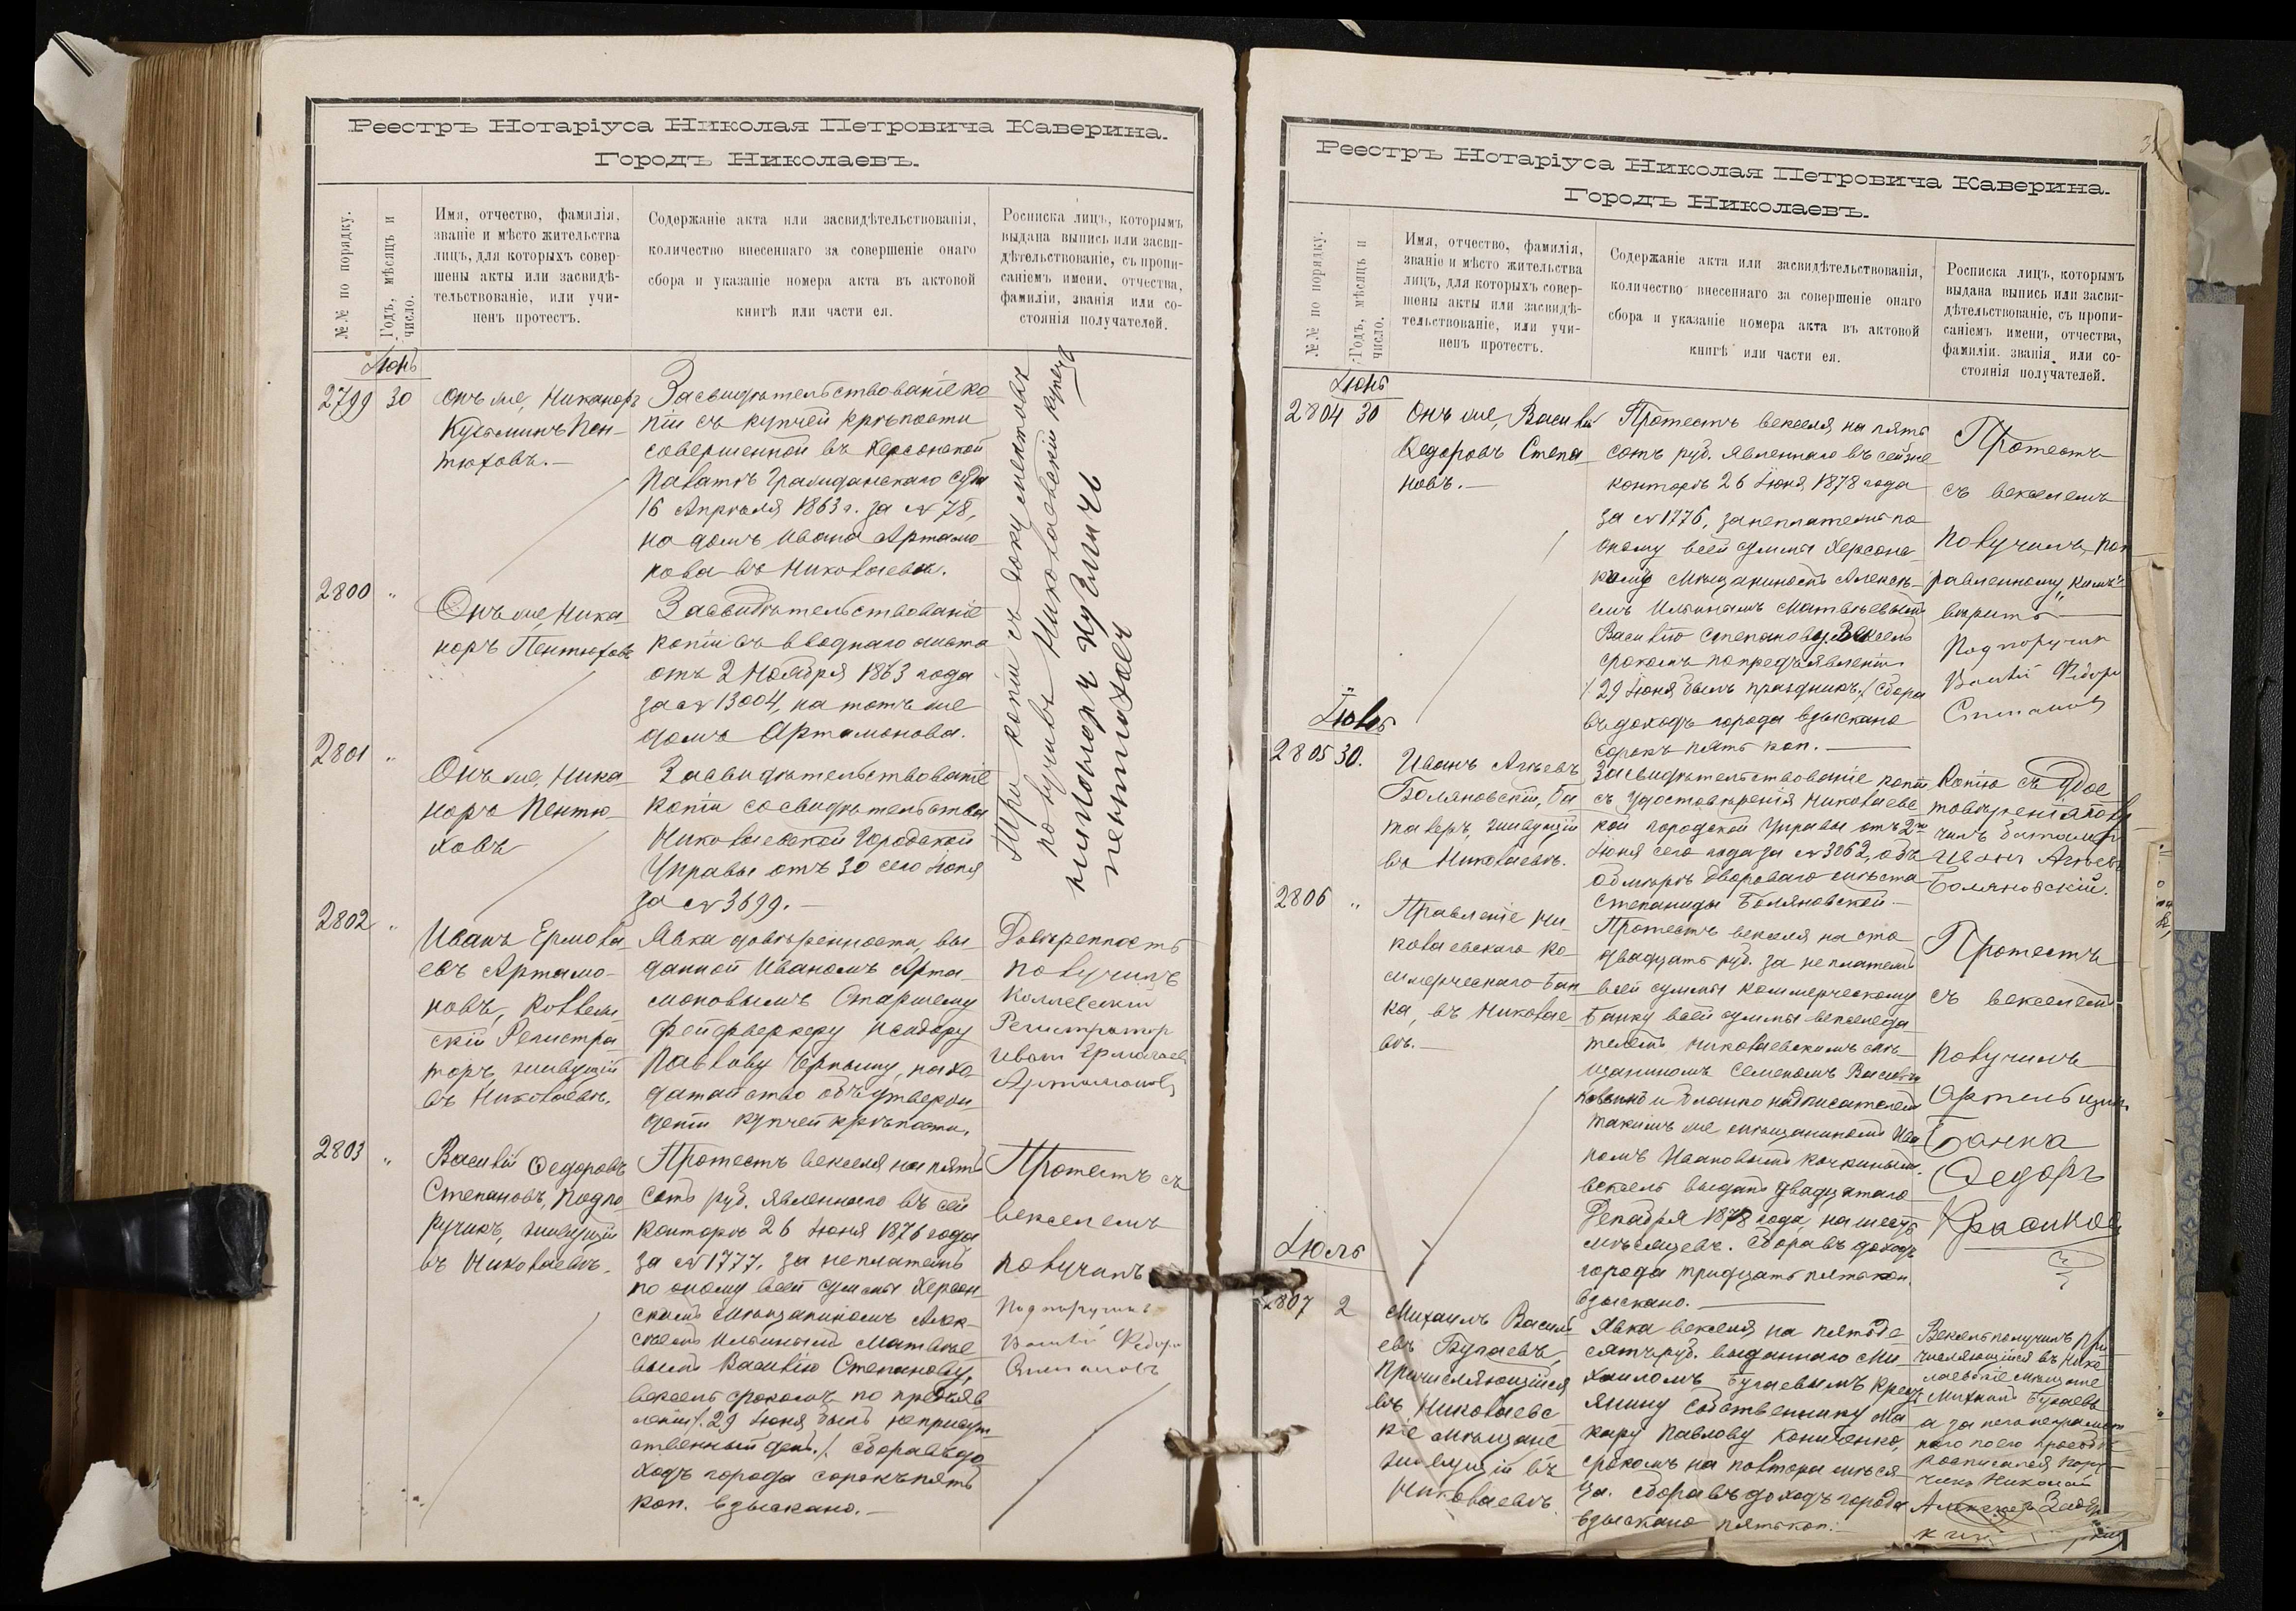 Реестръ Нотаріуса Николая Петровича Каверина.
Городъ Николаевъ.
№№ по порядку.
Годъ, мѣсяцъ и
число.
Имя, отчество, фамилія,
званіе и мѣсто жительства
лицъ, для которыхъ совер-
шены акты или засвидѣ-
тельствованіе, или учи-
ненъ протестъ.
Содержаніе акта или засвидѣтельствованія,
количество внесеннаго за совершеніе онаго
сбора и указаніе номера акта въ актовой
книгѣ или части ея.
Росписка лицъ, которымъ
выдана выпись или засви-
дѣтельствованіе, съ пропи-
саніемъ имени, отчества,
фамиліи, званія или со-
стоянія получателей.
Іюнь
2799 30
Онъ же, Никаноръ
Кузьминъ Пен-
тюховъ.—
Засвидѣтельствованіе ко
піи съ купчей крѣпости
совершенной въ Херсонской
Палатѣ Гражданскаго Суда
16 Апрѣля 1863 г. за № 78,
на домъ Ивана Артамо-
нова въ Николаевѣ.
2800 "
Онъ же, Ника
норъ Пентюховъ
Засвидѣтельствованіе
копіи съ вводнаго листа
отъ 2 Ноября 1863 года
за № 13004, на тотъ же
домъ Артамонова.
2801 "
Онъ же, Ника
норъ Пентю-
ховъ
Засвидѣтельствованіе
копіи со свидѣтельства
Николаевской Городской
Управы отъ 30 сего Іюня
за № 3699.—
Три копіи съ документовъ
получилъ Николаевскій купецъ
Никоноръ Кузмичъ
Пентюховъ
2802 "
Иванъ Ермола-
евъ Артамо-
новъ, Коллеж
скій Регистра-
торъ, живущій
въ Николаевѣ.
Явка довѣренности, вы-
данной Иваномъ Арта-
моновымъ Старшему
Фейерверкеру Исидору
Павлову, на хо-
датайство объ утверж-
деніи купчей крѣпости.
Доверенность
получилъ
Коллежскій
Регистраторъ
Иванъ Ермолаевъ
Артамоновъ
2803 "
Василій Ѳедоровъ
Степановъ, Подпо
ручикъ, живущій
въ Николаевѣ.
Протестъ векселя на пять
сотъ руб. явленнаго въ сей
конторѣ 26 Іюня 1876 года
за № 1777, за неплатежъ
по оному всей суммы Херсон-
скимъ мѣщаниномъ Алек-
сѣемъ Ильинымъ Матвѣе
вымъ Василію Степанову,
вексель срокомъ по предъяв
леніи /. 29 Іюня былъ неприсут-
ственный день./ сбора въ до
ходъ города сорокъ пять
коп. взыскано.—
Протестъ съ
векселемъ
получилъ
Подпоручикъ
Василій Ѳедоро
Степановъ
Реестръ Нотаріуса Николая Петровича Каверина.
Городъ Николаевъ.
№№ по порядку.
Годъ, мѣсяцъ и
число.
Имя, отчество, фамилія,
званіе и мѣсто жительства
лицъ, для которыхъ совер-
шены акты или засвидѣ-
тельствованіе, или учи-
ненъ протестъ.
Содержаніе акта или засвидѣтельствованія,
количество внесеннаго за совершеніе онаго
сбора и указаніе номера акта въ актовой
книгѣ или части ея.
Росписка лицъ, которымъ
выдана выпись или засви-
дѣтельствованіе, съ пропи-
саніемъ имени, отчества,
фамиліи, званія или со-
стоянія получателей.
Іюнь
2804 30
Онъ же, Василій
Ѳедоровъ Степа-
новъ.—
Протестъ векселя, на пять
сотъ руб. явленнаго въ сей же
конторѣ 26 Іюня 1878 года
за № 1776, за неплатежъ по
оному всей суммы Херсонс
кимъ мѣщаниномъ Алексѣ-
емъ Ильинымъ Матвѣевымъ
Василію Степанову. Вексель
срокомъ по предъявленіи
/. 29 Іюня былъ праздникъ./ сбора
въ доходъ города взыскано
сорокъ пять коп.—
Протестъ
съ векселемъ
получилъ, поп
равленному
верить
Подпоручик
Василій Ѳедоро
Степановъ
Іюль
2805 30.
Иванъ Агѣевъ
Боляновскій, Ба
талеръ, живущій
въ Николаевѣ.
Засвидѣтельствованіе копіи
съ удостовѣренія Николаевс
кой городской Управы отъ 2го
Іюня сего года за № 3062, объ
обмѣрѣ двороваго мѣста
Степаниды Боляновской.—
Копію съ удос
товѣренія полу
чилъ баталеръ
Иванъ Агѣевъ
Боляновскій.
2806 "
Правленіе Ни-
колаевскаго Ко-
ммерческаго Бан
ка, въ Николае-
вѣ.—
Протестъ векселя на сто
двадцать руб. за неплатежъ
всей суммы Коммерческому
Банку всей суммы векселеда
телемъ Николаевскимъ мѣ-
щаниномъ Семеномъ
и бланконадписателемъ
такимъ же мѣщаниномъ Ива
номъ Ивановымъ Кочкинымъ.
вексель выданъ двадцатаго
Декабря 1878 года, на шесть
мѣсяцевъ. Сбора въ доходъ
города тридцать пять коп.
взыскано.—
Протестъ
съ векселемъ
получилъ
Артельщик
Банка
Ѳедоръ
Красиков
Іюль
2807 2
Михаилъ Василь
евъ Бугаевъ,
Причисляющійся
въ Николаевс
кіе мѣщане
живущій въ
Николаевѣ
Явка векселя, на пятьде
сятъ руб. выданнаго Ми
хаиломъ Бугаевымъ Крест
янину собственнику Ма
кару Павлову Кониченко,
срокомъ на полтора мѣся
ца. Сбора въ доходъ города
взыскано пять коп.—
Вексель получилъ при
числяющійся въ Нико
лаевскіе мѣщане
Михаилъ Бугаевъ
а за него неграмот
наго по его просьбѣ
росписался Пору
чикъ Николай